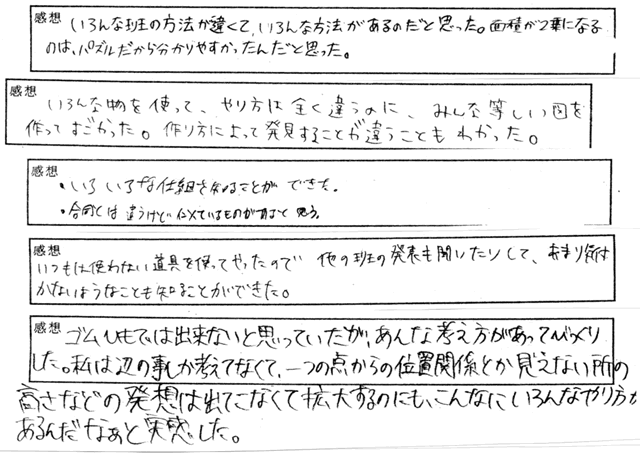 感想
いろんな班の方法が違くて、いろんな方法があるのだと思った。面積が2乗になる
のは、パズルだから分かりやすかったんだと思った。
感想
いろんな物を使って、やり方は全く違うのに、みんな等しい図を
作ってすごかった。作り方によって発見することが違うこともわかった。
感想
・いろいろな仕組を知ることができた。
・合同とは違うけど似ているものがあると思う。
感想
いつもは使わない道具を使ってやったので 他の班の発表も聞いたりして、あまり気付
かないようなことも知ることができた。
感想
ゴムひもでは出来ないと思っていたが、あんな考え方があってびっくり
した。私は辺の事しか考えてなくて、一つの点からの位置関係とか見えない所の
高さなどの発想は出てこなくて拡大するのにも、こんなにいろんなやり方が
あるんだなぁと実感した。